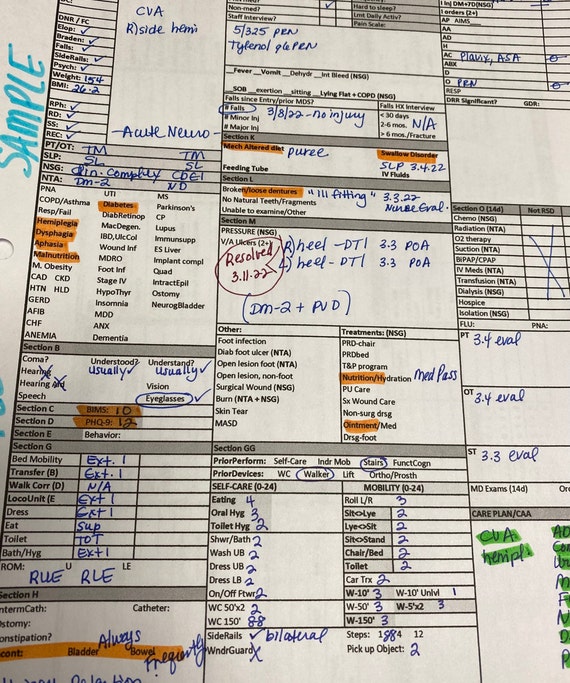 SAMPLE
DNR / FC
Elop: ✓
Braden: ✓
Falls: ✓
SideRails: ✓
Psych: ✓
Weight: 154
BMI: 26.2
RPh: ✓
RD: ✓
SS: ✓
REC: ✓
CVA
R)side hemi
-Acute Neuro-
PT/OT: TM TM
SLP: SL SL
NSG: Clin. complex CDE1
NTA: Dm-2 ND
PNA UTI MS
COPD/Asthma Diabetes Parkinson's
Resp/Fail DiabRetinop CP
Hemiplegia MacDegen. Lupus
Dysphagia IBD,UlcCol Immunsupp
Aphasia Wound Inf ES Liver
Malnutrition MDRO Implant compl
M. Obesity Foot Inf Quad
CAD CKD Stage IV IntractEpil
HTN HLD HypoThyr Ostomy
GERD Insomnia NeurogBladder
AFIB MDD
CHF ANX
ANEMIA Dementia
Section B
Coma? Understood? Understand?
Hearing usually ✓ usually ✓
Hearing aid Vision
Speech Eyeglasses ✓
Section C BIMS: 10
Section D PHQ-9: 12
Section E Behavior:
Section G
Bed Mobility Ext. 1
Transfer (B) Ext. 1
Walk Corr (D) N/A
LocoUnit (E) Ext 1
Dress Ext 1
Eat Sup
Toilet TOT
Bath/Hyg Ext 1
ROM: RUE U RLE LE
Section H
IntermCath: Catheter:
Ostomy:
Constipation?
Incont: Bladder Always Bowel Frequently
Non-med? ✓
Staff Interview?
5/325 PRN
Tylenol q6 PRN
Hard to sleep?
Lmt Daily Activ?
Pain Scale:
__Fever __Vomit __Dehydr __Int Bleed (NSG)
__SOB __exertion __sitting __Lying Flat + COPD (NSG)
Falls since Entry/prior MDS? Falls HX Interview
# Falls 3/8/22 - no injury < 30 days
# Minor Inj 2-6 mos. N/A
# Major Inj > 6 mos./Fracture
Section K
Mech Altered diet puree Swallow Disorder
SLP 3.4.22
Feeding Tube IV Fluids
Section L
Broken/loose dentures "ill fitting" 3.3.22
No Natural Teeth/Fragments Nurse Eval.
Unable to examine/Other
Section M
PRESSURE (NSG)
V/A Ulcers (2+) R) heel - DTI 3.3 POA
Resolved 3.11.22 L) heel - DTI 3.3 POA
(Dm-2 + PVD)
Other: Treatments: (NSG)
Foot infection PRD-chair
Diab foot ulcer (NTA) PRDbed
Open lesion foot (NTA) T&P program
Open lesion, non-foot Nutrition/Hydration med Pass
Surgical Wound (NSG) PU Care
Burn (NTA + NSG) Sx Wound Care
Skin Tear Non-surg drsg
MASD Ointment/Med
Drsg-foot
Section GG
PriorPerform: Self-Care Indr Mob Stairs FunctCogn
PriorDevices: WC Walker Lift Ortho/Prosth
SELF-CARE (0-24) MOBILITY (0-24)
Eating 4 Roll L/R 3
Oral Hyg 3 Sit<>Lye 2
Toilet Hyg 2 Lye<>Sit 2
Shwr/Bath 2 Sit<>Stand 2
Wash UB 2 Chair/Bed 2
Dress UB 2 Toilet 2
Dress LB 2 Car Trx 2
On/Off Ftwr 2 W-10' 3 W-10' Unlvl 1
WC 50'x2 2 W-50' 3 W-5'x2 3
WC 150' 88 W-150' 3
SideRails ✓ bilateral Steps: 1 4 12
WndrGuard X Pick up Object: 2
Inj DM+7D(NSG)
I orders (2+)
AP AIMS
AA
AD
H
AC Plavix, ASA
ABX
D
O PRN
RESP
DRR Significant? GDR:
Section O (14d) Not RSD
Chemo (NSG)
Radiation (NTA)
O2 therapy
Suction (NTA)
BiPAP/CPAP
IV Meds (NTA)
Transfusion (NTA)
Dialysis (NSG)
Hospice
Isolation (NSG)
FLU: PNA:
PT 3.4 eval
OT 3.4 eval
ST 3.3 eval
MD Exams (14d)
CARE PLAN/CAA
CVA
hempli